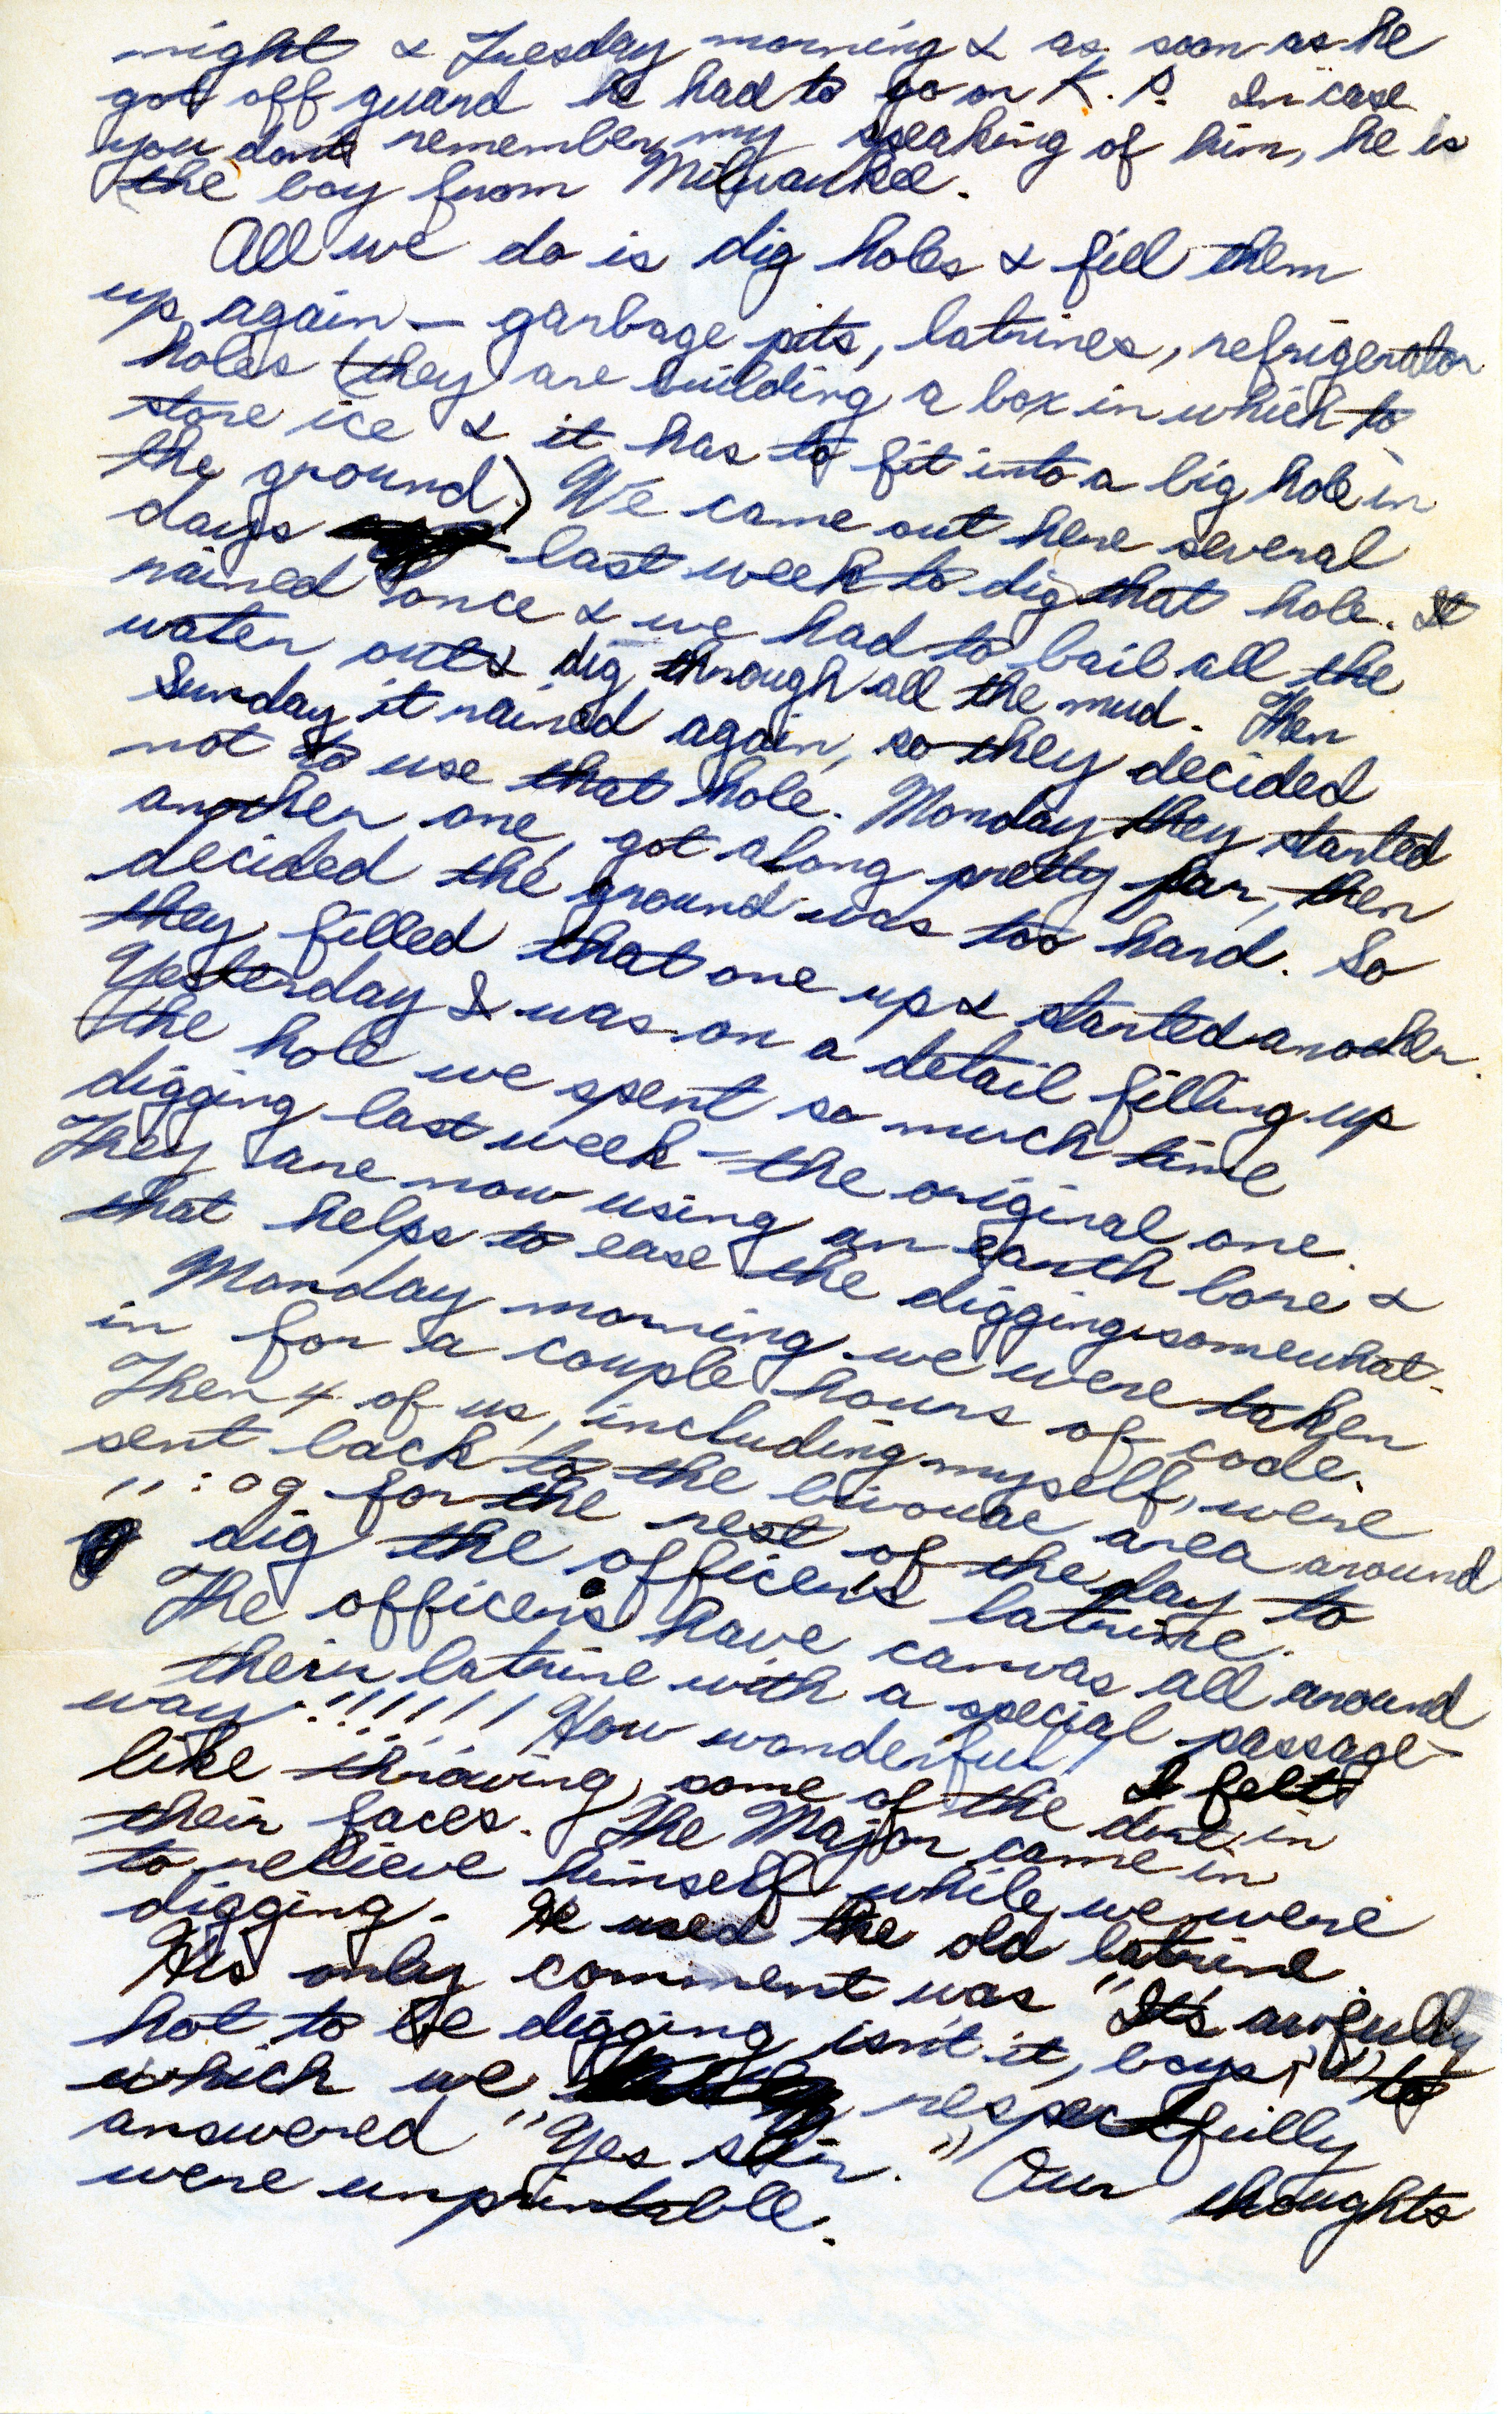 night & Tuesday morning & as soon as he
got off guard he had to go on K. P. In case
you don't remember my speaking of him, he is
the boy from Milwaukee.
All we do is dig holes & fill them
up again — garbage pits, latrines, refrigerator
holes (they are building a box in which to
store ice & it has to fit into a big hole in
the ground.) We came out here several
days last week to dig that hole. It
rained once & we had to bail all the
water out & dig through all the mud. Then
Sunday it rained again, so they decided
not to use that hole. Monday they started
another one, got along pretty far, then
decided the ground was too hard. So
they filled that one up & started another.
Yesterday I was on a detail filling up
the hole we spent so much time
digging last week - the original one.
They are now using an earth bore &
that helps to ease the digging somewhat.
Monday morning we were taken
in for a couple hours of code.
Then 4 of us, including myself, were
sent back to the bivouac area around
11:09 for the rest of the day to
dig the officers latrine.
The officers have canvas all around
their latrine with a special passage-
way.!!!!!! How wonderful! I felt
like throwing some of the dirt in
their faces. The Major came in
to relieve himself while we were
digging. He used the old latrine.
His only comment was "It's awfully
hot to be digging, isn't it, boys," to
which we respectfully
answered "Yes sir." Our thoughts
were unprintable.